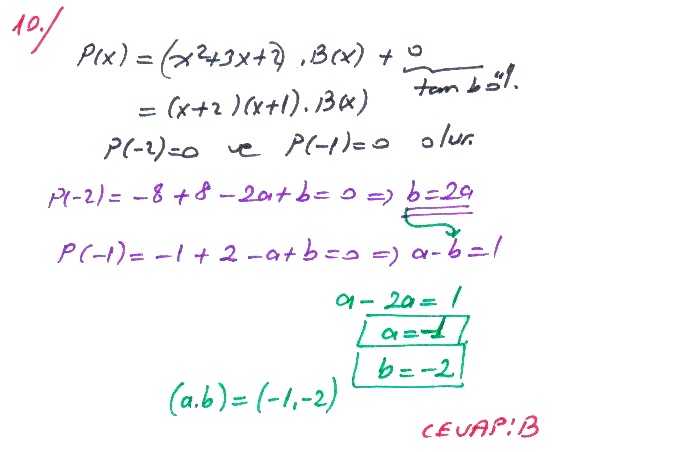 10./
P(x) = (x²+3x+2) . B(x) + 0
tam böl.
= (x+2)(x+1). B(x)
P(-2)=0 ve P(-1)=0 olur.
P(-2) = -8 + 8 - 2a + b = 0 => b=2a
P(-1) = -1 + 2 - a + b = 0 => a-b = 1
a - 2a = 1
a = -1
b = -2
(a.b) = (-1,-2)
CEVAP:B